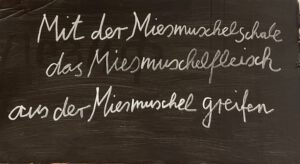 Mit der Miesmuschelschale
das Miesmuschelfleisch
aus der Miesmuschel greifen